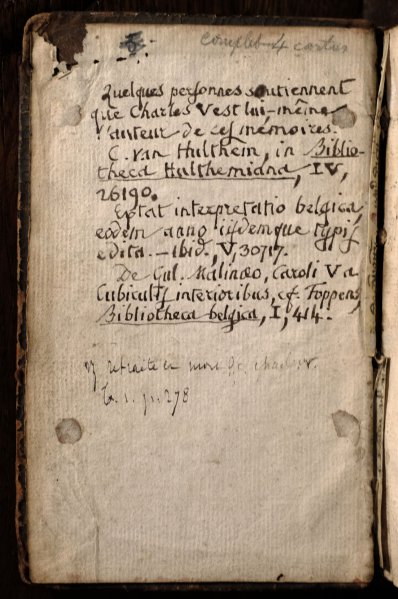 complet 4 cartes
Quelques personnes soutiennent
que Charles V est lui-même
l'auteur de ces mémoires.
C. van Hulthem, in Biblio-
theca Hulthemiana, IV,
26190.
Extat interpretatio belgica,
eodem anno iisdemque typis
edita. — Ibid., V, 30717.
De Gul. Malinæo, Caroli V a
Cubiculis interioribus, cf. Foppens,
Bibliotheca belgica, I, 414.
retraite et mort de charles V.
t. 1. p. 278